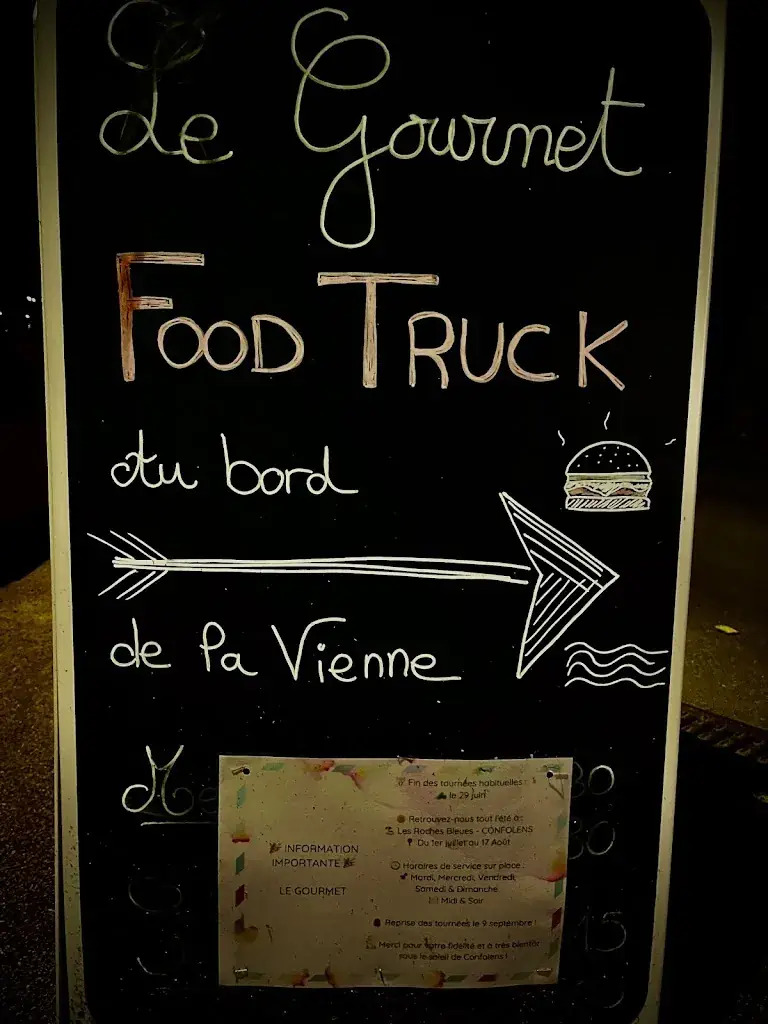 Le Gourmet
FOOD TRUCK
du bord
de la Vienne
Me
30
30
15
INFORMATION
IMPORTANTE
LE GOURMET
Fin des tournées habituelles :
le 29 juin
Retrouvez-nous tout l'été à :
Les Roches Bleues - CONFOLENS
Du 1er juillet au 17 Août
Horaires de service sur place :
Mardi, Mercredi, Vendredi,
Samedi & Dimanche
Midi & Soir
Reprise des tournées le 9 septembre !
Merci pour votre fidélité et à très bientôt
sous le soleil de Confolens !